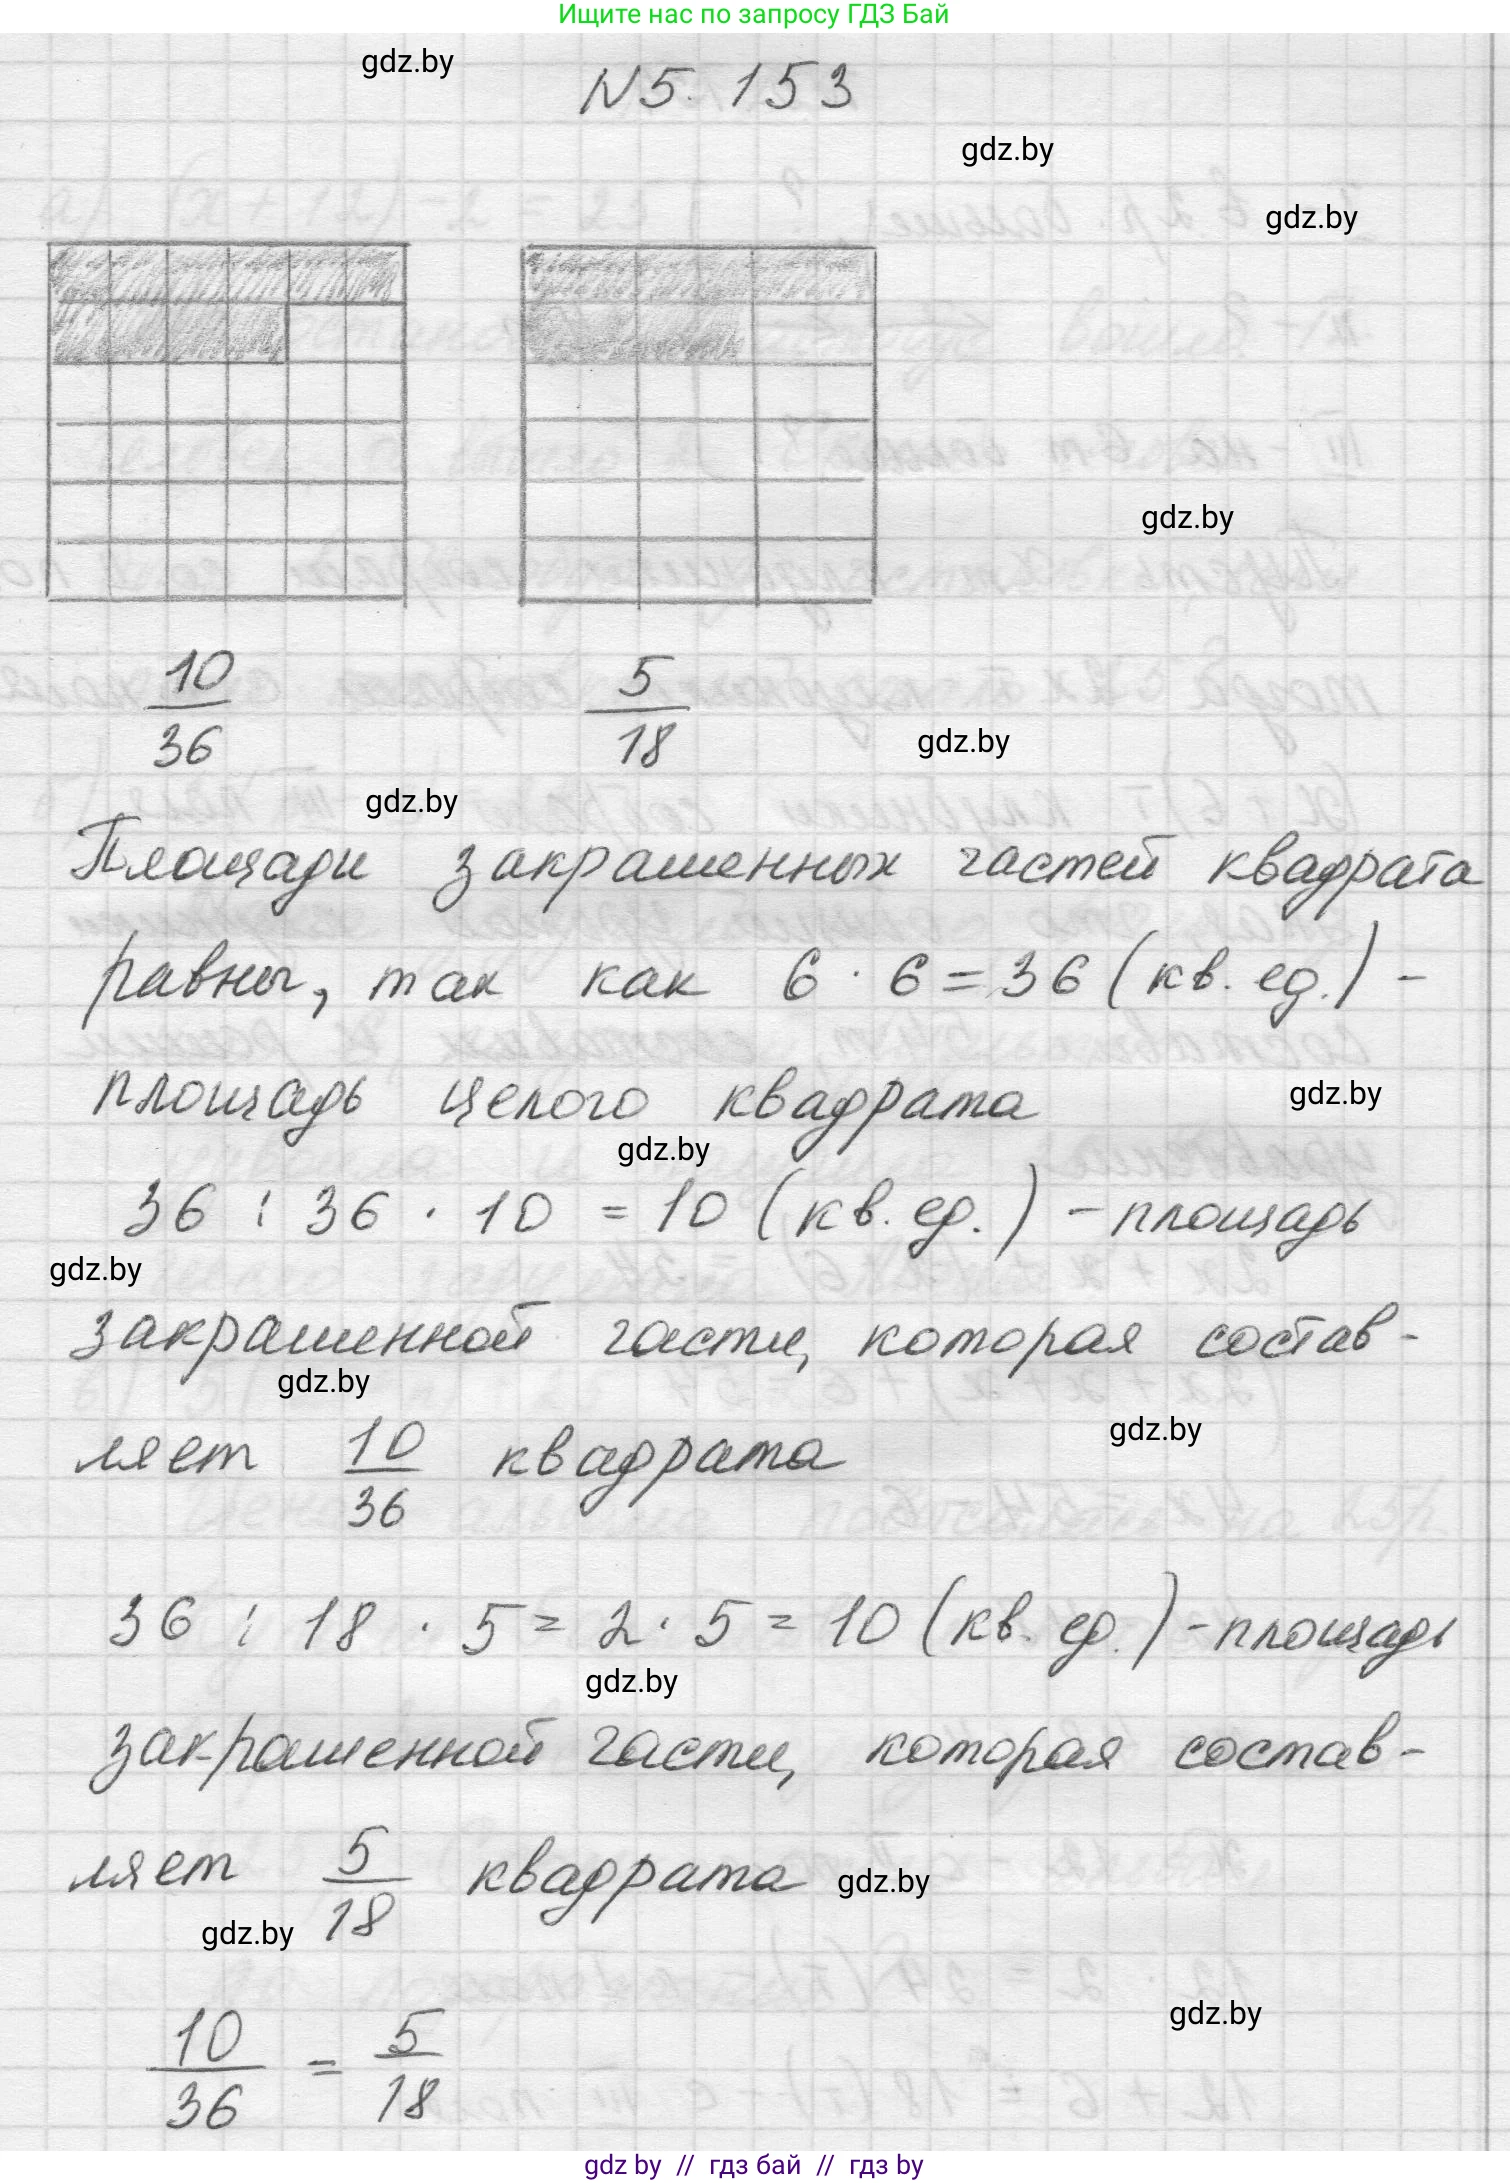 Ищите нас по запросу ГДЗ Бай
gdz.by
N5.153
gdz.by
gdz.by
gdz.by
10/36
5/18
gdz.by
gdz.by
Площади закрашенных частей квадрата
равны, так как 6 · 6 = 36 (кв. ед.) -
площадь целого квадрата
gdz.by
gdz.by
36 : 36 · 10 = 10 (кв. ед.) - площадь
gdz.by
закрашенной части, которая состав-
gdz.by
ляет 10/36 квадрата
gdz.by
36 : 18 · 5 = 2 · 5 = 10 (кв. ед.) - площадь
gdz.by
закрашенной части, которая состав-
ляет 5/18 квадрата
gdz.by
gdz.by
gdz.by
10/36 = 5/18
gdz by // гдз бай // гдз by